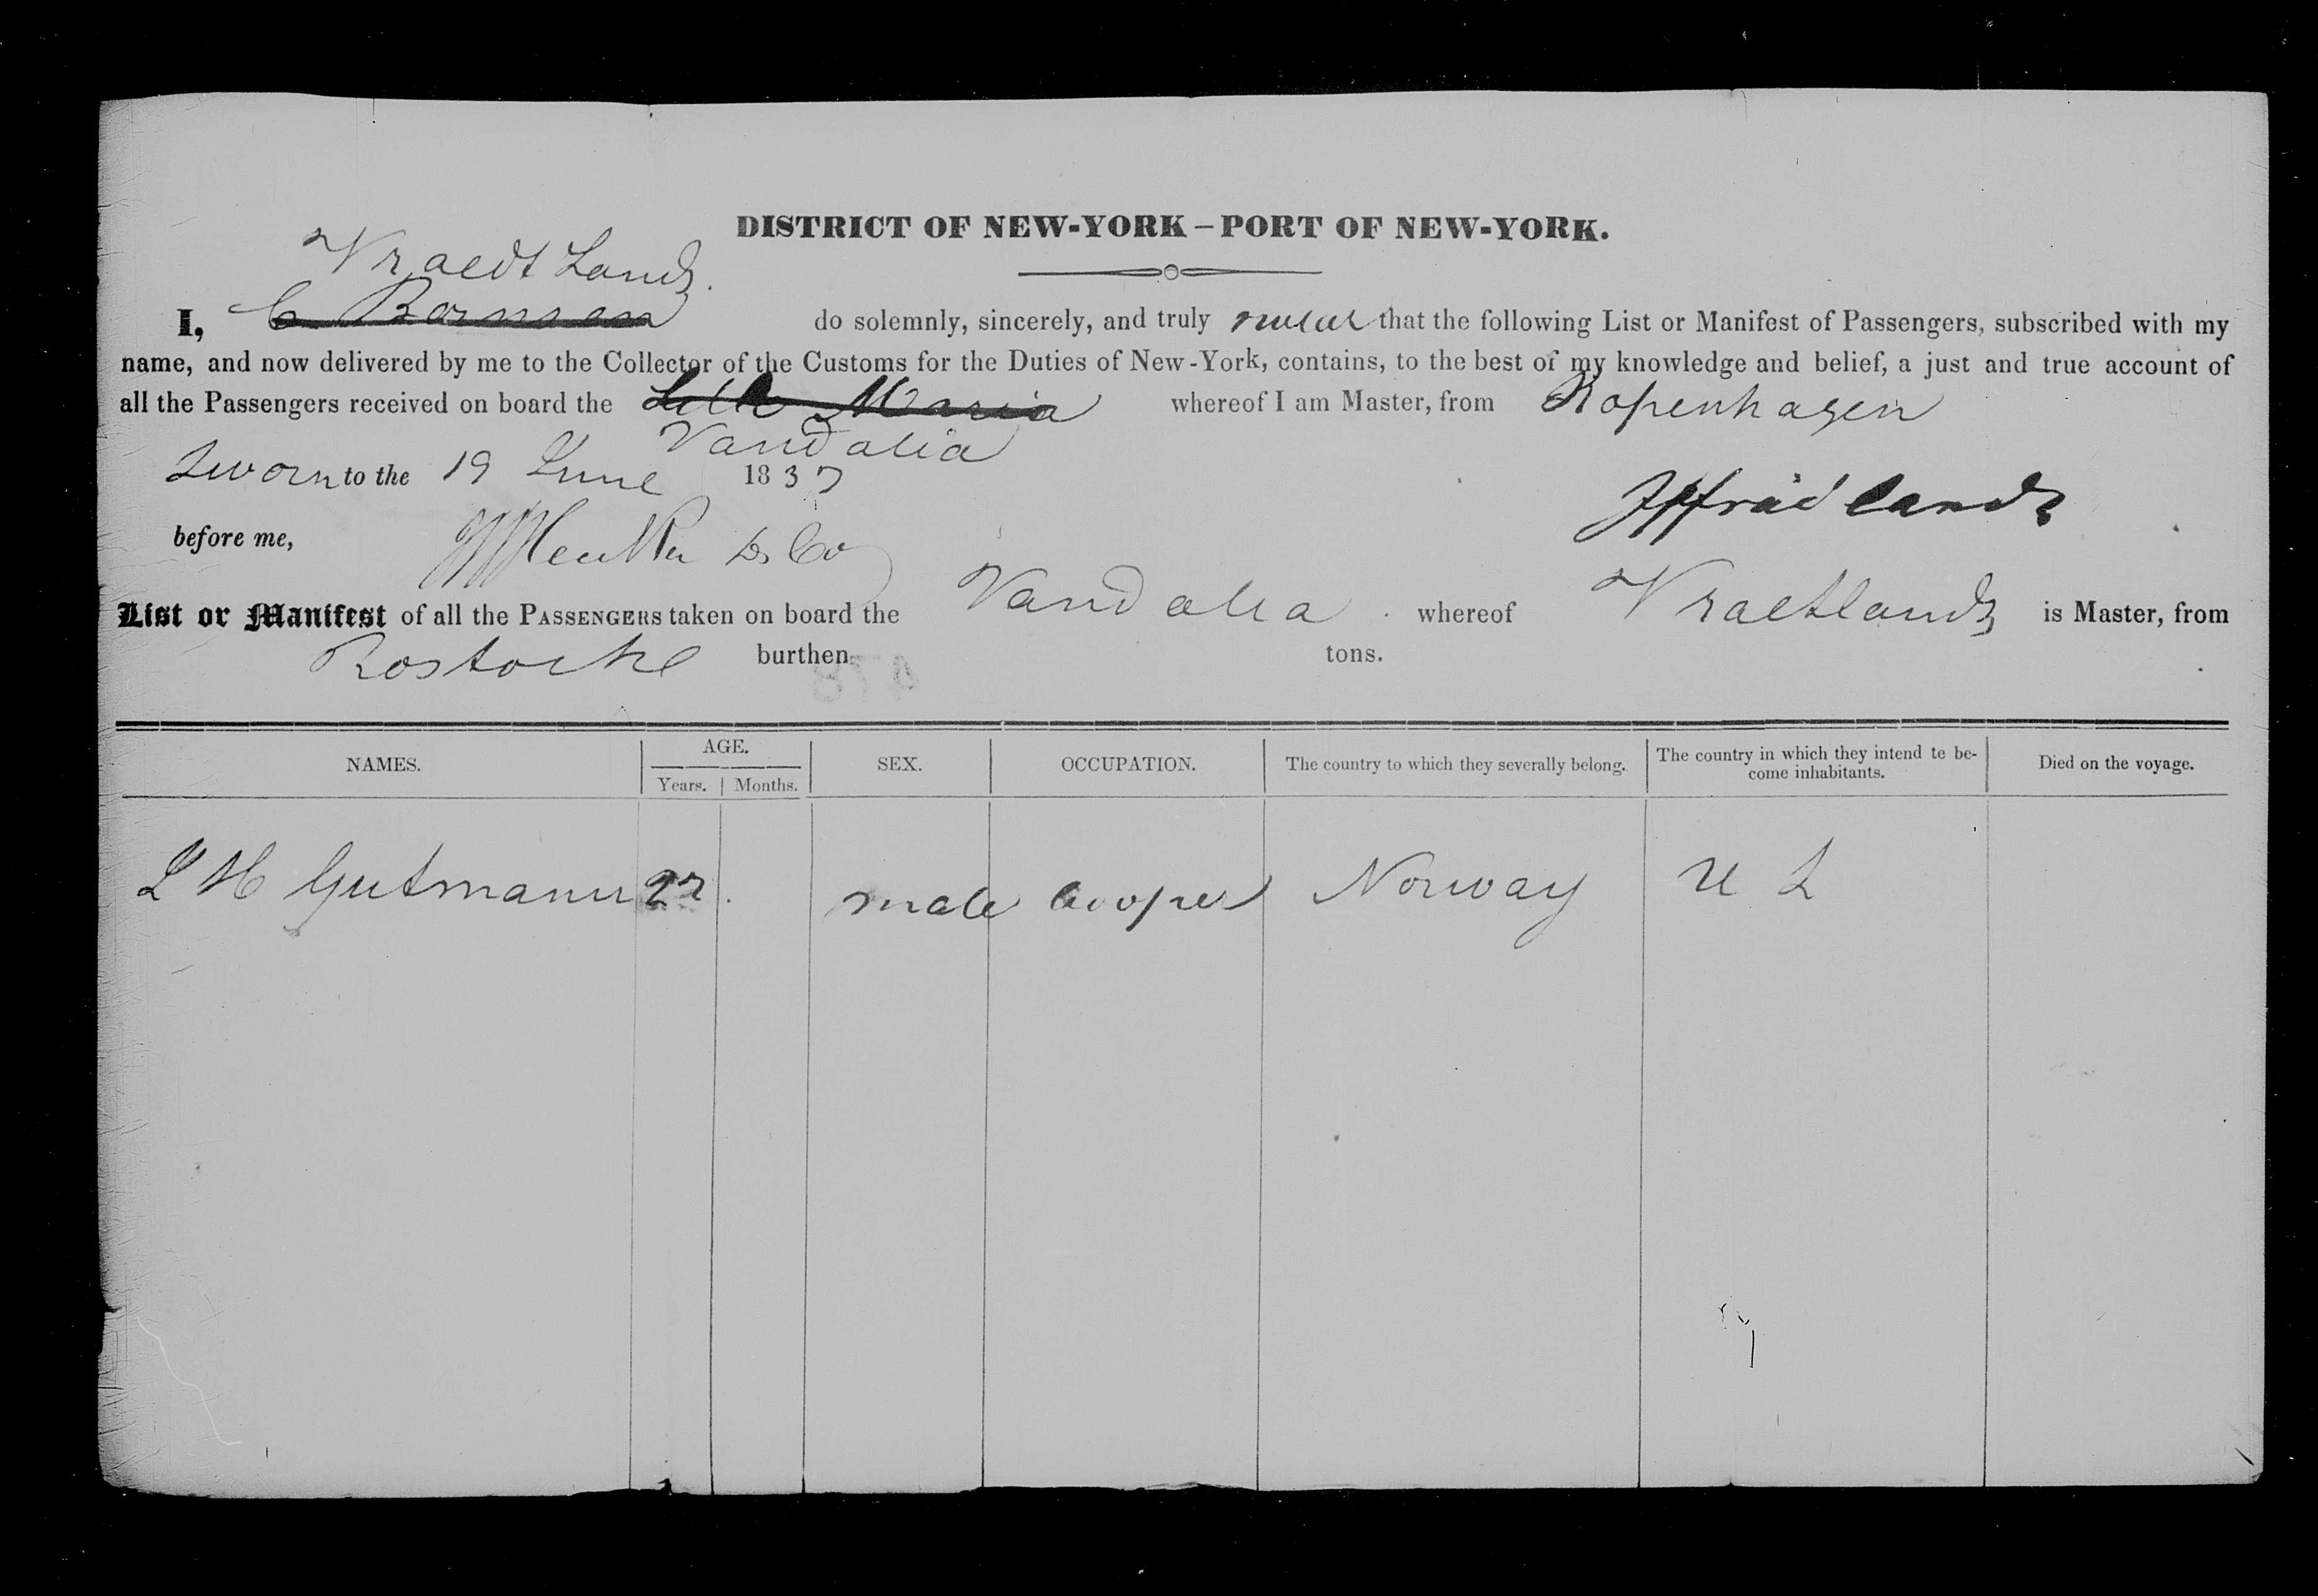 DISTRICT OF NEW-YORK – PORT OF NEW-YORK.
Vraedt Lands.
I, C Bornsen do solemnly, sincerely, and truly swear that the following List or Manifest of Passengers, subscribed with my
name, and now delivered by me to the Collector of the Customs for the Duties of New-York, contains, to the best of my knowledge and belief, a just and true account of
all the Passengers received on board the Maria whereof I am Master, from Kopenhagen
Vandalia
Sworn to the 19 June 1837
before me,
List or Manifest of all the PASSENGERS taken on board the Vandalia whereof Vraetlands is Master, from
Rostocke burthen tons.
NAMES. AGE. SEX. OCCUPATION. The country to which they severally belong. The country in which they intend te be-
come inhabitants. Died on the voyage.
Years. Months.
L H Gutmann 27 male Cooper Norway U S